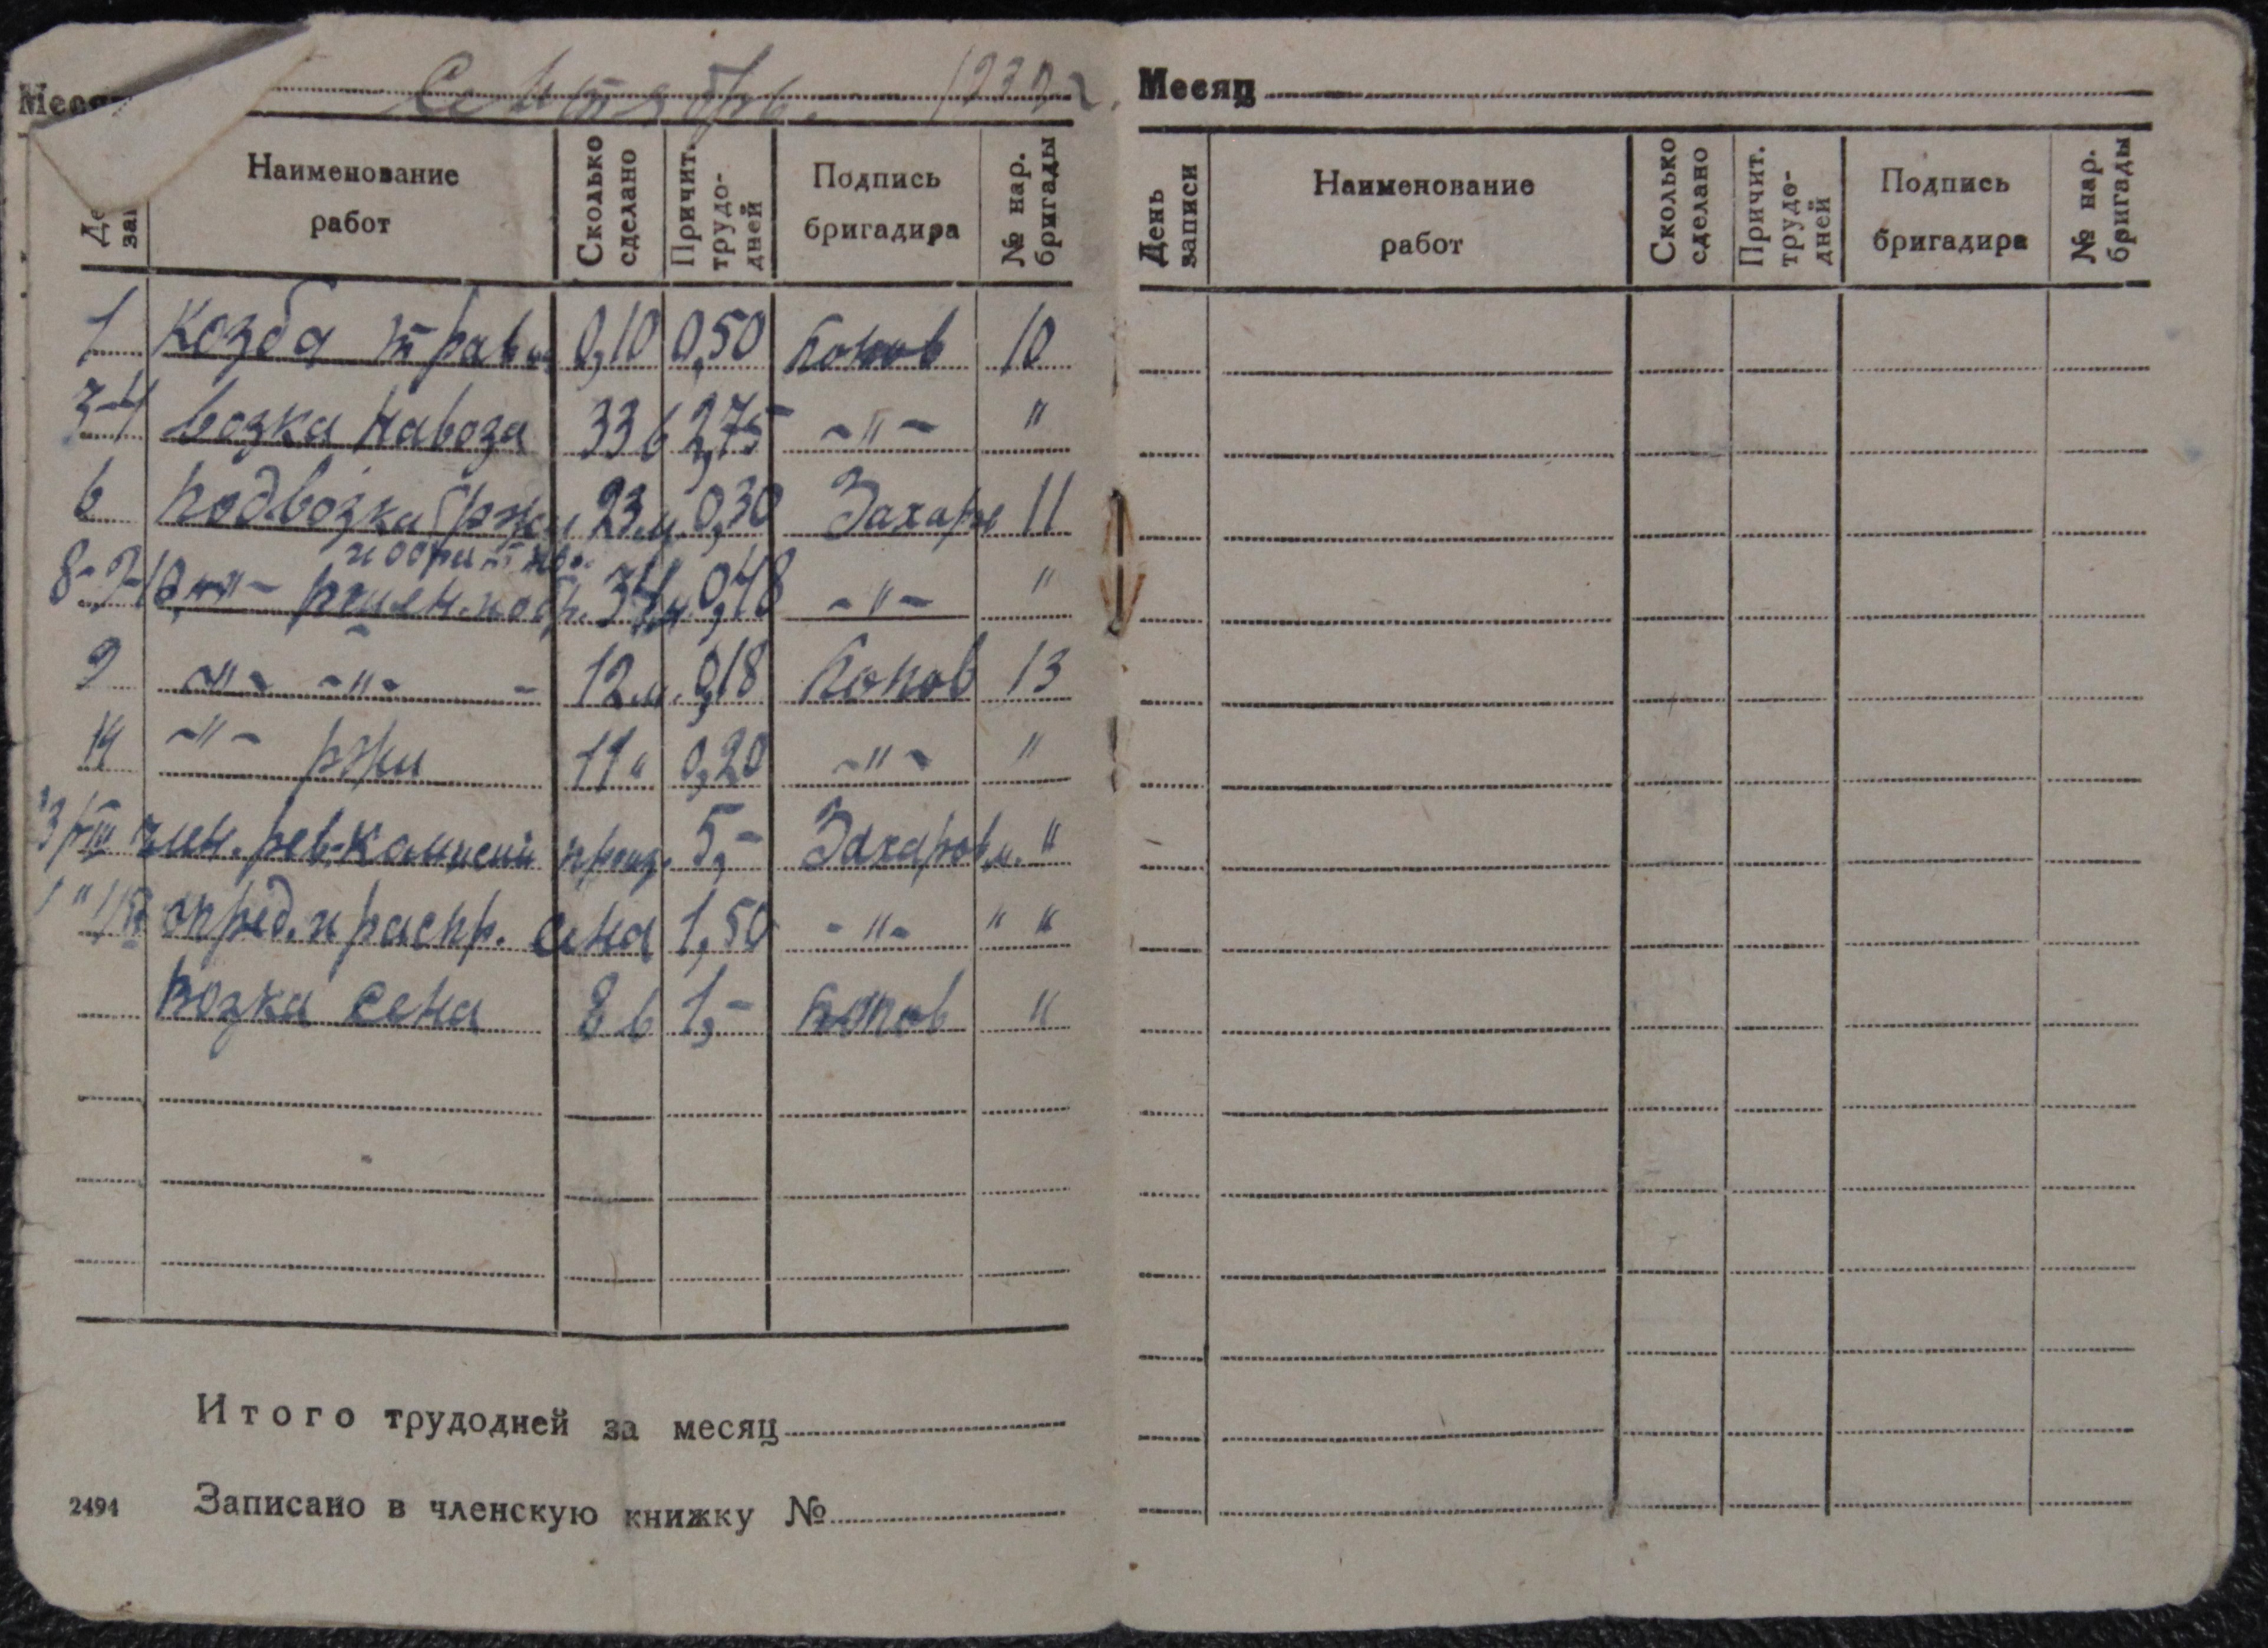 Сентябрь.
Наименование работ Сколько сделано Причит. трудо-дней Подпись бригадира № нар. бригады
1 Козба травы 0,10 0,50 Попов 10
3-4 возка навоза 33 в 2,75 -"- "
6 подвозка ржи 23 м. 0,30 Захаров 11
8-9-10 -"- 34 м. 0,48 -"- "
9 -"- -"- - 12 м. 0,18 Попов 13
14 -"- ржи 11 " 0,20 -"- "
член. рев-комиссии 5,- Захаров "
опред. и распр. сена 1,50 -"- " "
возка сена 8 в 1,- Попов "
Итого трудодней за месяц
2494 Записано в членскую книжку №
Месяц
День записи Наименование работ Сколько сделано Причит. трудо-дней Подпись бригадира № нар. бригады